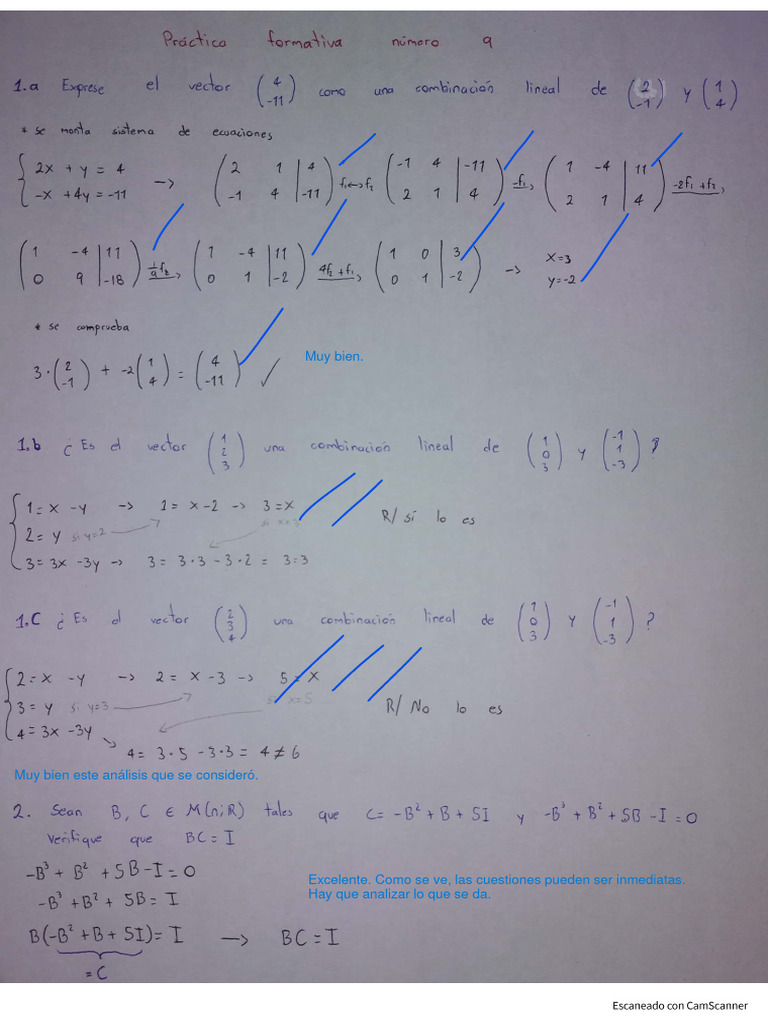 Práctica formativa número 9
1.a Exprese el vector (4 -11) como una combinación lineal de (2 -1) y (1 4)
* se monta sistema de ecuaciones
{ 2x + y = 4 -x + 4y = -11 -> ( 2 1 | 4 -1 4 | -11 ) f₁↔f₂ ( -1 4 | -11 2 1 | 4 ) -f₁, ( 1 -4 | 11 2 1 | 4 ) -2f₁+f₂,
( 1 -4 | 11 0 9 | -18 ) 1/9 f₂, ( 1 -4 | 11 0 1 | -2 ) 4f₂+f₁, ( 1 0 | 3 0 1 | -2 ) -> x=3 y=-2
* se comprueba
3·(2 -1) + -2(1 4) = (4 -11) ✓
Muy bien.
1.b ¿Es el vector (1 2 3) una combinación lineal de (1 0 3) y (-1 1 -3)?
1 = x - y -> 1 = x - 2 -> 3 = x
2 = y si y=2 si x=3
R/ sí lo es
3 = 3x - 3y -> 3 = 3·3 - 3·2 = 3=3
1.C ¿Es el vector (2 3 4) una combinación lineal de (1 0 3) y (-1 1 -3)?
2 = x - y -> 2 = x - 3 -> 5 = x
3 = y si y=3 si x=5
R/ No lo es
4 = 3x - 3y
4 = 3·5 - 3·3 = 4 ≠ 6
Muy bien este análisis que se consideró.
2. Sean B, C ∈ M(n;R) tales que C = -B² + B + 5I y -B³ + B² + 5B - I = 0
verifique que BC = I
-B³ + B² + 5B - I = 0
-B³ + B² + 5B = I
Excelente. Como se ve, las cuestiones pueden ser inmediatas.
Hay que analizar lo que se da.
B(-B² + B + 5I) = I -> BC = I
= C
Escaneado con CamScanner